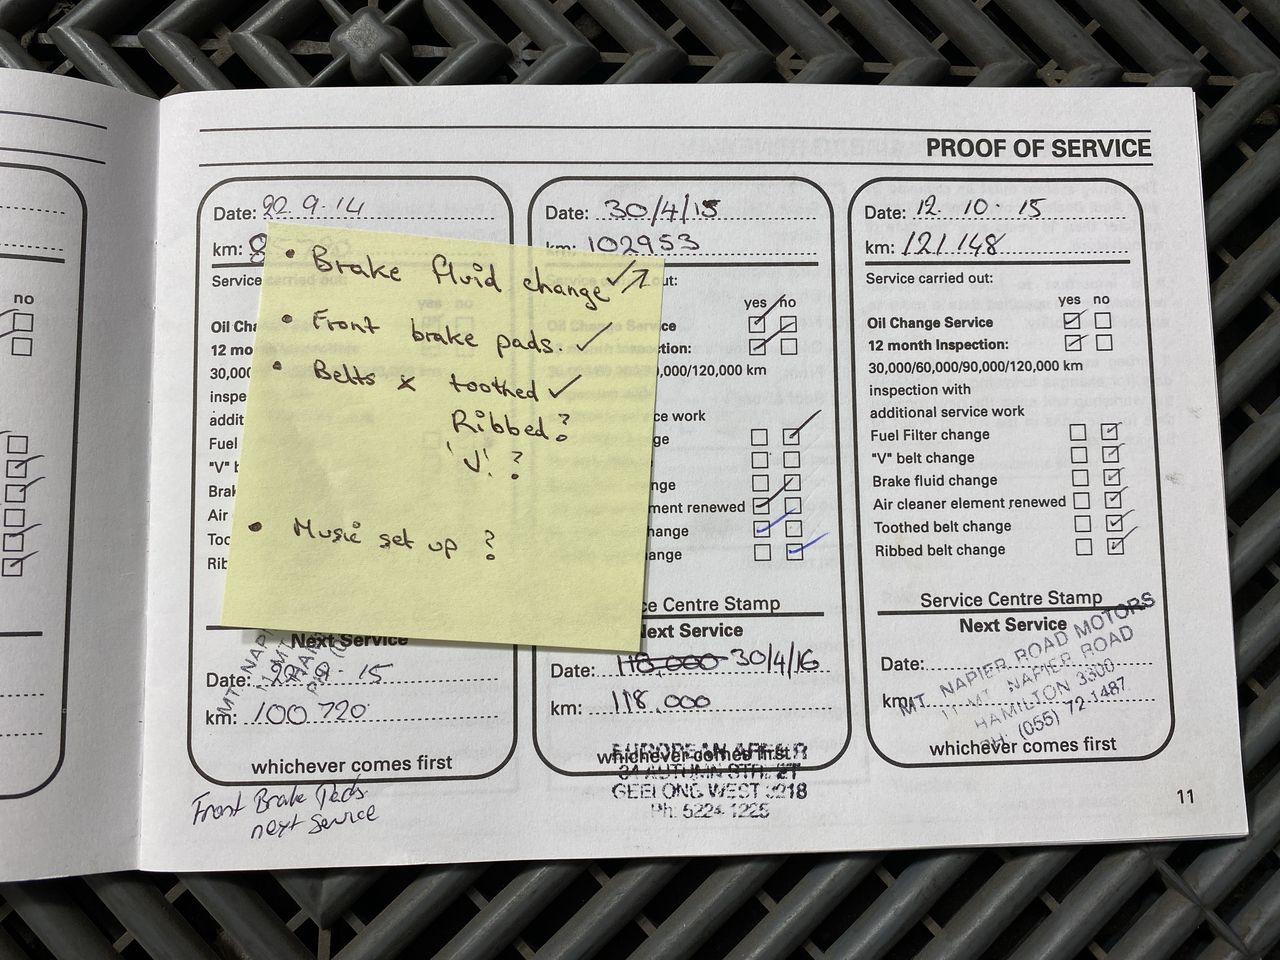 PROOF OF SERVICE
no
Date: 22.9.14
km:
Service carried out:
yes no
Oil Cha
12 mo
30,000
inspe
addit
Fuel
"V" b
Brak
Air
Too
Rib
• Brake fluid change ✓
• Front brake pads. ✓
• Belts x toothed ✓
Ribbed?
'V'. ?
• Music set up ?
Next Service
Date:
km: 100 720
whichever comes first
Front Brake Pads
next service
Date: 30/4/15
km: 102953
out:
yes no
ce
tion:
,000/120,000 km
ce work
ge
nge
ment renewed
hange
ange
ce Centre Stamp
Next Service
Date: 118,000 30/4/16
km: 118.000
whichever comes first
34 AUTUMN STREET
GEELONG WEST 3218
Ph: 5224 1225
Date: 12.10.15
km: 121148
Service carried out:
yes no
Oil Change Service
12 month Inspection:
30,000/60,000/90,000/120,000 km
inspection with
additional service work
Fuel Filter change
"V" belt change
Brake fluid change
Air cleaner element renewed
Toothed belt change
Ribbed belt change
Service Centre Stamp
Next Service
Date:
km:
MT. NAPIER ROAD MOTORS
11 MT. NAPIER ROAD
HAMILTON 3300
PH: (055) 72-1487
whichever comes first
11